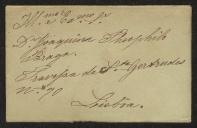 Il.mo e Ex.mo Sr.
Dr. Joaquim Theophilo
Braga.
Travessa de S.ta Gertrudes
nº 70
Lisboa.